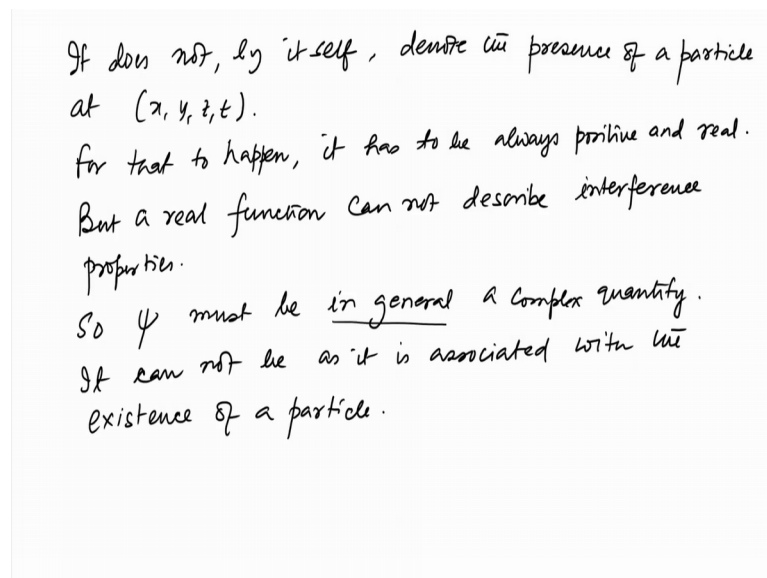 It does not, by itself, denote the presence of a particle
at (x, y, z, t).
For that to happen, it has to be always positive and real.
But a real function can not describe interference
properties.
So ψ must be in general a complex quantity.
It can not be as it is associated with the
existence of a particle.